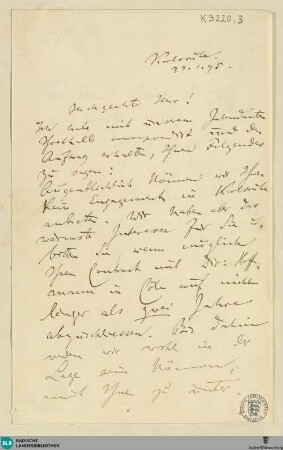 K 3220,3
Karlsruhe
Hochgeehrter Herr!
Ich habe mit unserem Intendanten
correspondirt und den
Auftrag erhalten, Ihnen Folgendes
zu sagen:
Augenblicklich können wir Ihnen
kein Engagement in Karlsruhe
anbieten. Wir haben aber das
wärmste Interesse für Sie u.
bitten Sie wenn möglich
Ihren Contract mit Dir: Hoff-
mann in Cöln auf nicht
länger als zwei Jahre
abzuschliessen. Bis dahin
werden wir wohl in der
Lage sein können,
mit Ihnen zu unter-
BLB BADISCHE
LANDESBIBLIOTHEK
Baden-Württemberg